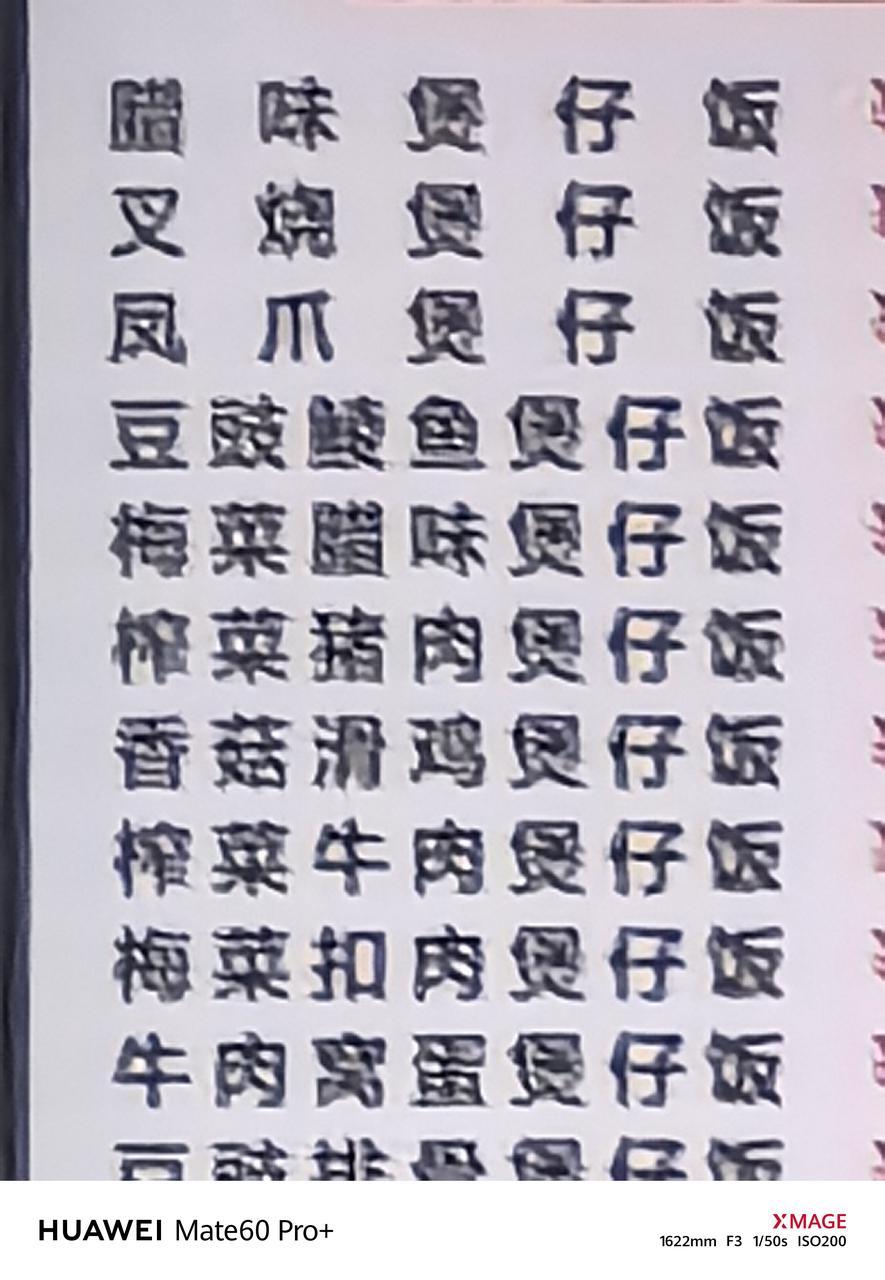 腊味煲仔饭
叉烧煲仔饭
凤爪煲仔饭
豆豉鲮鱼煲仔饭
梅菜腊味煲仔饭
榨菜猪肉煲仔饭
香菇滑鸡煲仔饭
榨菜牛肉煲仔饭
梅菜扣肉煲仔饭
牛肉窝蛋煲仔饭
豆豉排骨煲仔饭
HUAWEI Mate60 Pro+
XMAGE
1622mm F3 1/50s ISO200